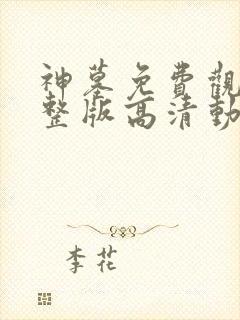 神墓免費觀
整版高清動
李花